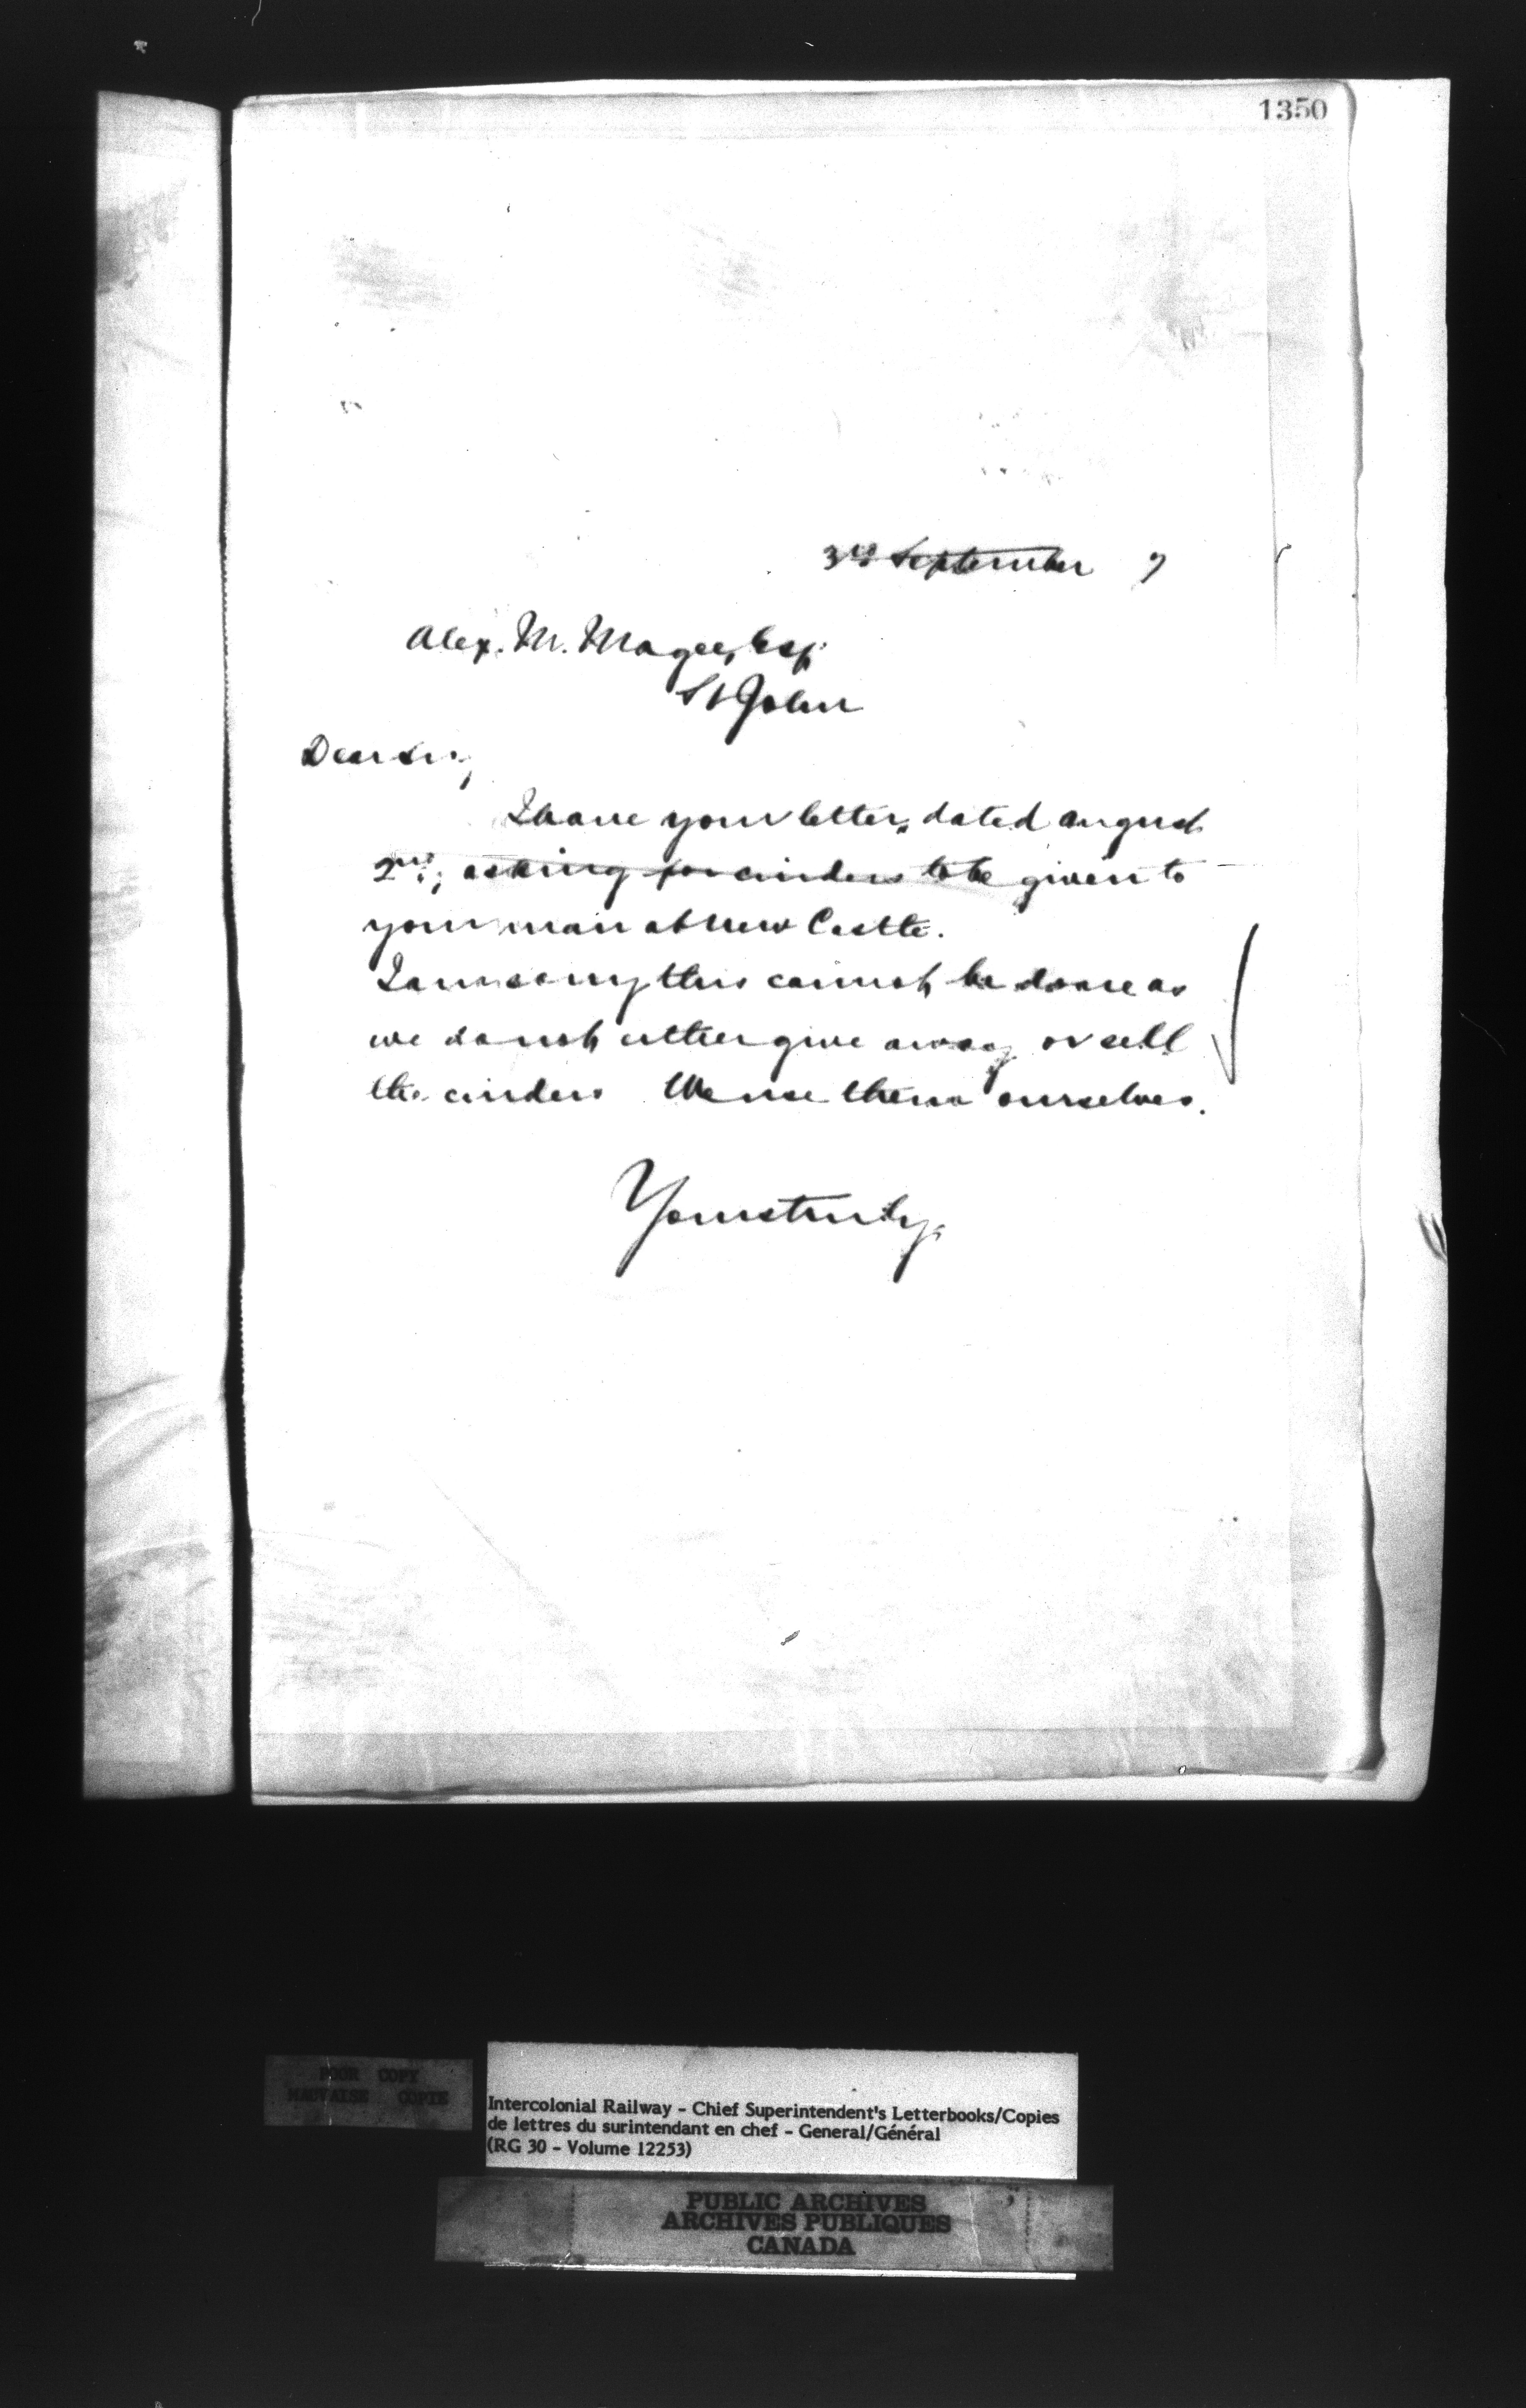 1350
3rd September 7
Alex. M. Magee, Esq.
St John
Dear Sir,
I have your letter, dated August
2nd, asking for cinders to be given to
your man at New Castle.
I am sorry this cannot be done as
we do not either give away or sell
the cinders We use them ourselves.
Yours truly,
POOR COPY
MAUVAISE COPIE
Intercolonial Railway - Chief Superintendent's Letterbooks/Copies
de lettres du surintendant en chef - General/Général
(RG 30 - Volume 12253)
PUBLIC ARCHIVES
ARCHIVES PUBLIQUES
CANADA